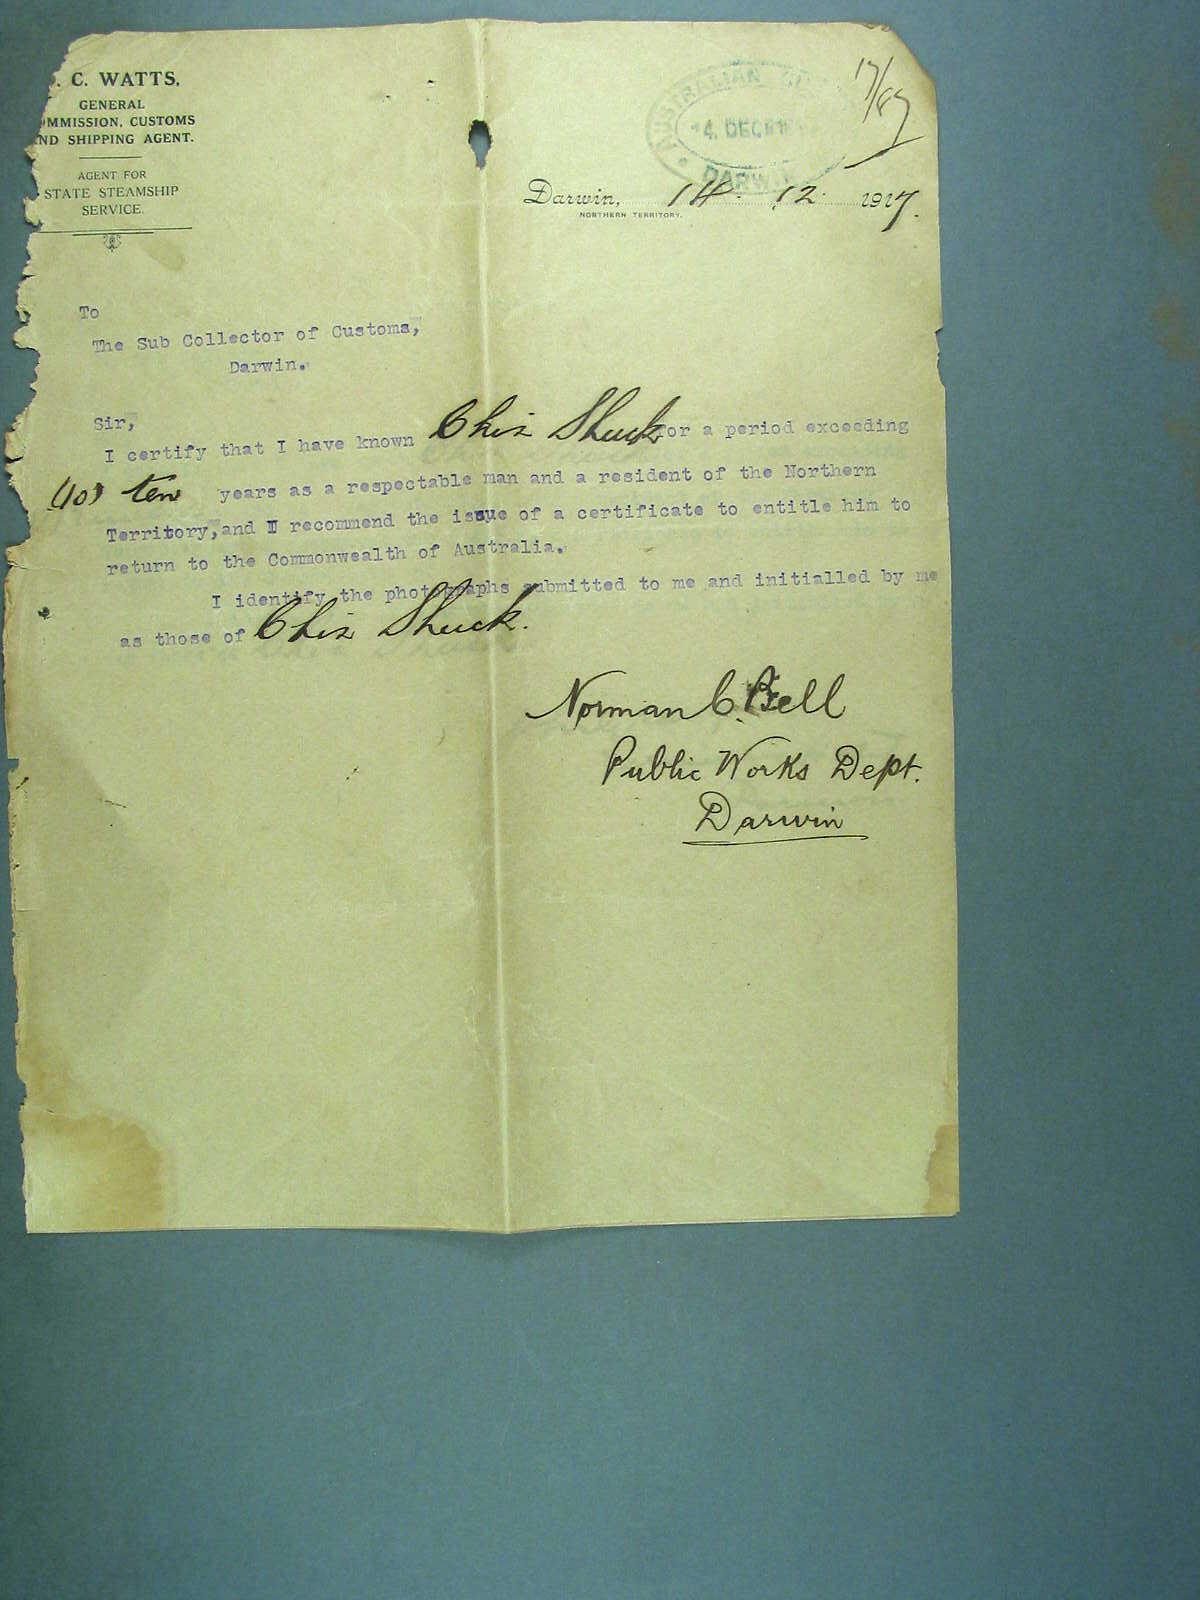 . C. WATTS,
GENERAL
OMMISSION, CUSTOMS
ND SHIPPING AGENT.
AGENT FOR
STATE STEAMSHIP
SERVICE.
AUSTRALIAN
14. DEC.
DARWIN
17/87
Darwin, 14. 12. 1917.
NORTHERN TERRITORY.
To
The Sub Collector of Customs,
Darwin.
Sir,
I certify that I have known Chin Shuck for a period exceeding
(10) ten years as a respectable man and a resident of the Northern
Territory, and I recommend the issue of a certificate to entitle him to
return to the Commonwealth of Australia.
I identify the photographs submitted to me and initialled by me
as those of Chin Shuck.
Norman C. Bell
Public Works Dept.
Darwin